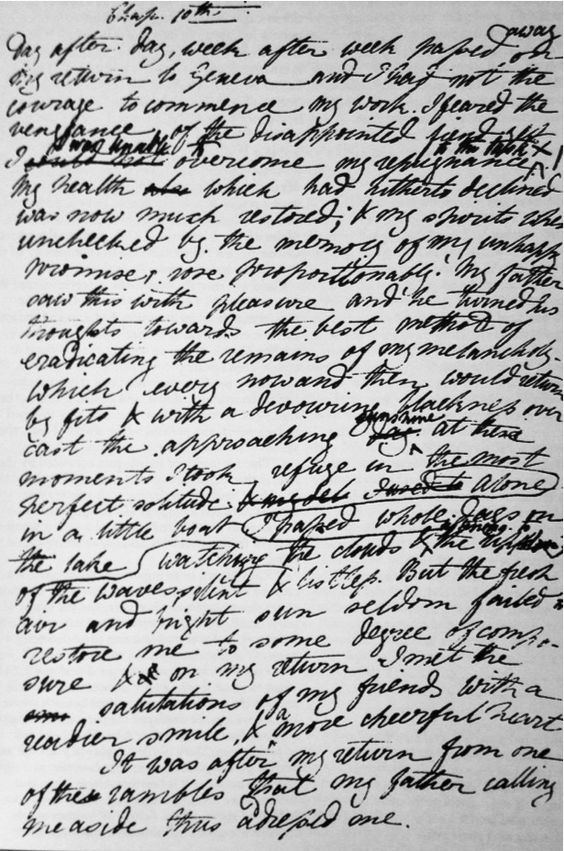 Chap. 10th
away
Day after day, week after week passed on
my return to Geneva and I had not the
courage to commence my work. I feared the
vengeance of the disappointed fiend yet
was unable to to the task
I could not overcome my repugnance
My health which had hitherto declined
was now much restored; & my spirits when
unchecked by the memory of my unhappy
promise, rose proportionably. My father
saw this with pleasure and he turned his
thoughts towards the best method of
eradicating the remains of my melancholy-
which every now and then would return
by fits & with a devouring blackness over
sunshine
cast the approaching at these
moments I took refuge in the most
perfect solitude I used to alone
in a little boat I passed whole days on
the lake watching the clouds & the
of the waves silent & listless. But the fresh
air and bright sun seldom failed to
restore me to some degree of compo-
sure & on my return I met the
salutations of my friends with a
readier smile, & a more cheerful heart
It was after my return from one
of these rambles that my father calling
me aside thus adressed me.